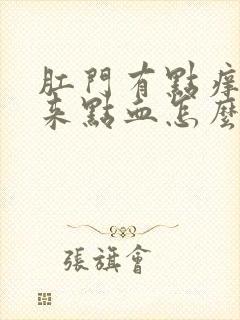 肛門有點痒
來點血怎麼
張旗會